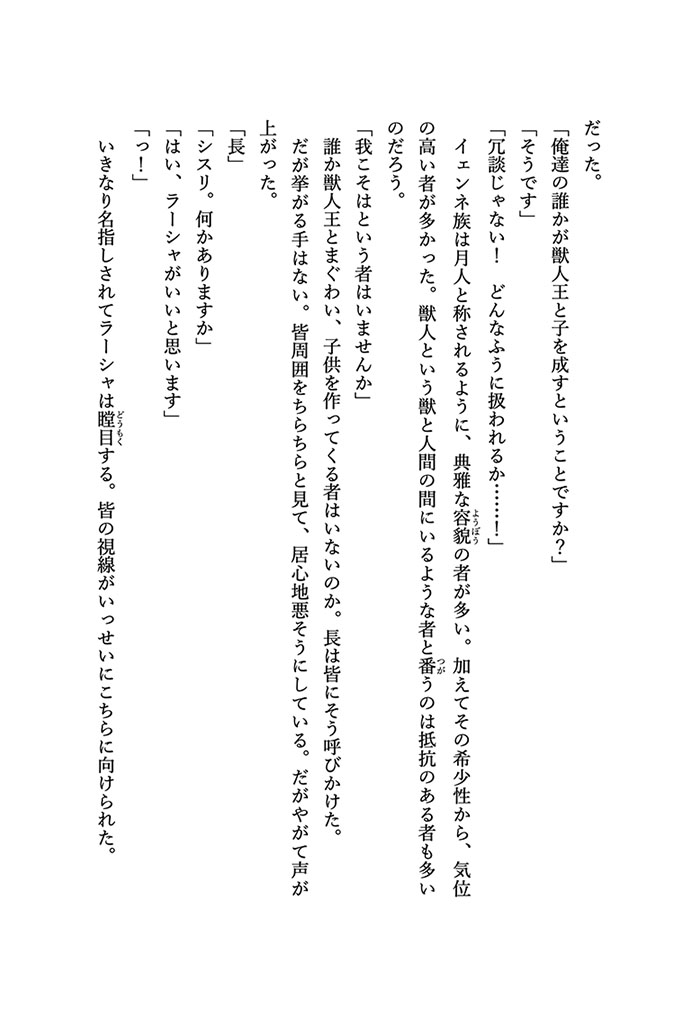 だった。
「俺達の誰かが獣人王と子を成すということですか？」
「そうです」
「冗談じゃない！　どんなふうに扱われるか……！」
　イェンネ族は月人と称されるように、典雅な容貌の者が多い。加えてその希少性から、気位
の高い者が多かった。獣人という獣と人間の間にいるような者と番うのは抵抗のある者も多い
のだろう。
「我こそはという者はいませんか」
　誰か獣人王とまぐわい、子供を作ってくる者はいないのか。長は皆にそう呼びかけた。
　だが挙がる手はない。皆周囲をちらちらと見て、居心地悪そうにしている。だがやがて声が
上がった。
「長」
「シスリ。何かありますか」
「はい、ラーシャがいいと思います」
「っ！」
　いきなり名指しされてラーシャは瞠目する。皆の視線がいっせいにこちらに向けられた。